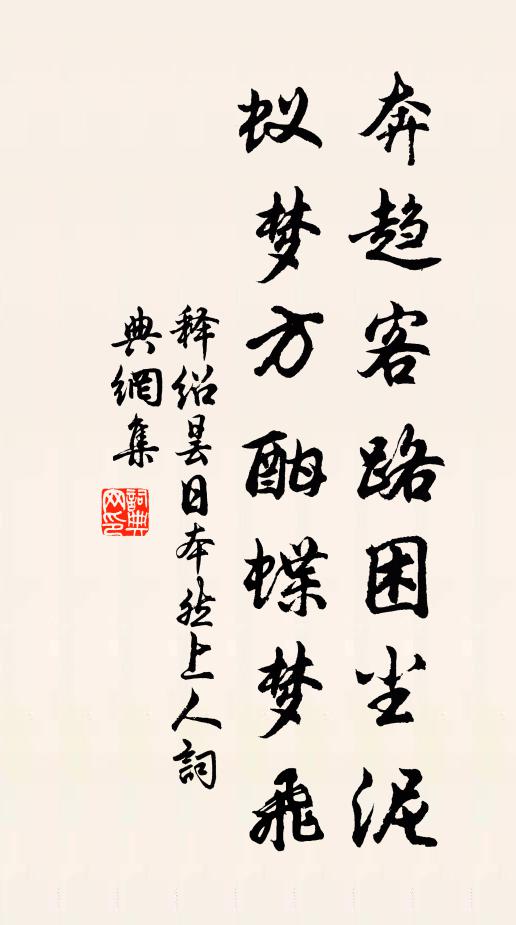 奔趋客路困尘泥
蚁梦方酣蝶梦飞
释绍昙日本然上人詞
典網集
詞典网印